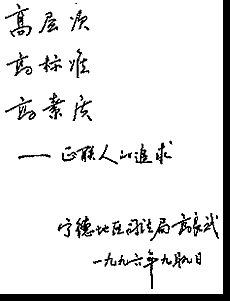 高层次
高标准
高素质
——正联人的追求
宁德地区司法局 高长武
一九九六年九月九日